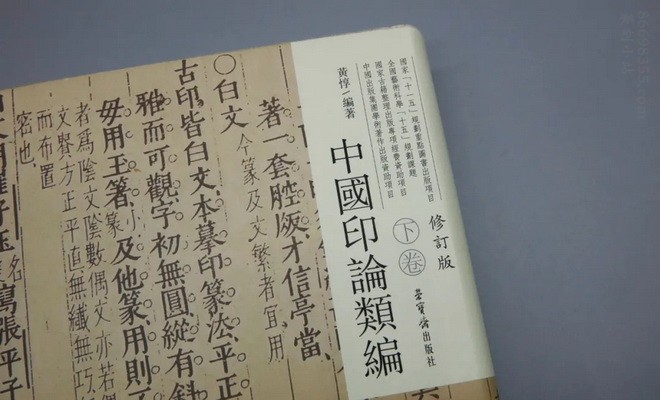 國家「十一五」規劃重點圖書出版項目
全國藝術科學「十五」規劃課題
國家古籍整理出版專項經費資助項目
中國出版集團學術著作出版資助項目
黃惇/編著
中國印論類編
修訂版
下卷
榮寶齋出版社
著一套腔版才信亭當
〇白文
今篆及文繁者宜用
古印皆白文本摹印篆法平正
雅而可觀字初無圓縱有斜
毋用玉箸小篆及他篆用則
者爲陰文陰數偶文亦若
文與方正平直無纖無巧
而布置
密也
名
寫張平子